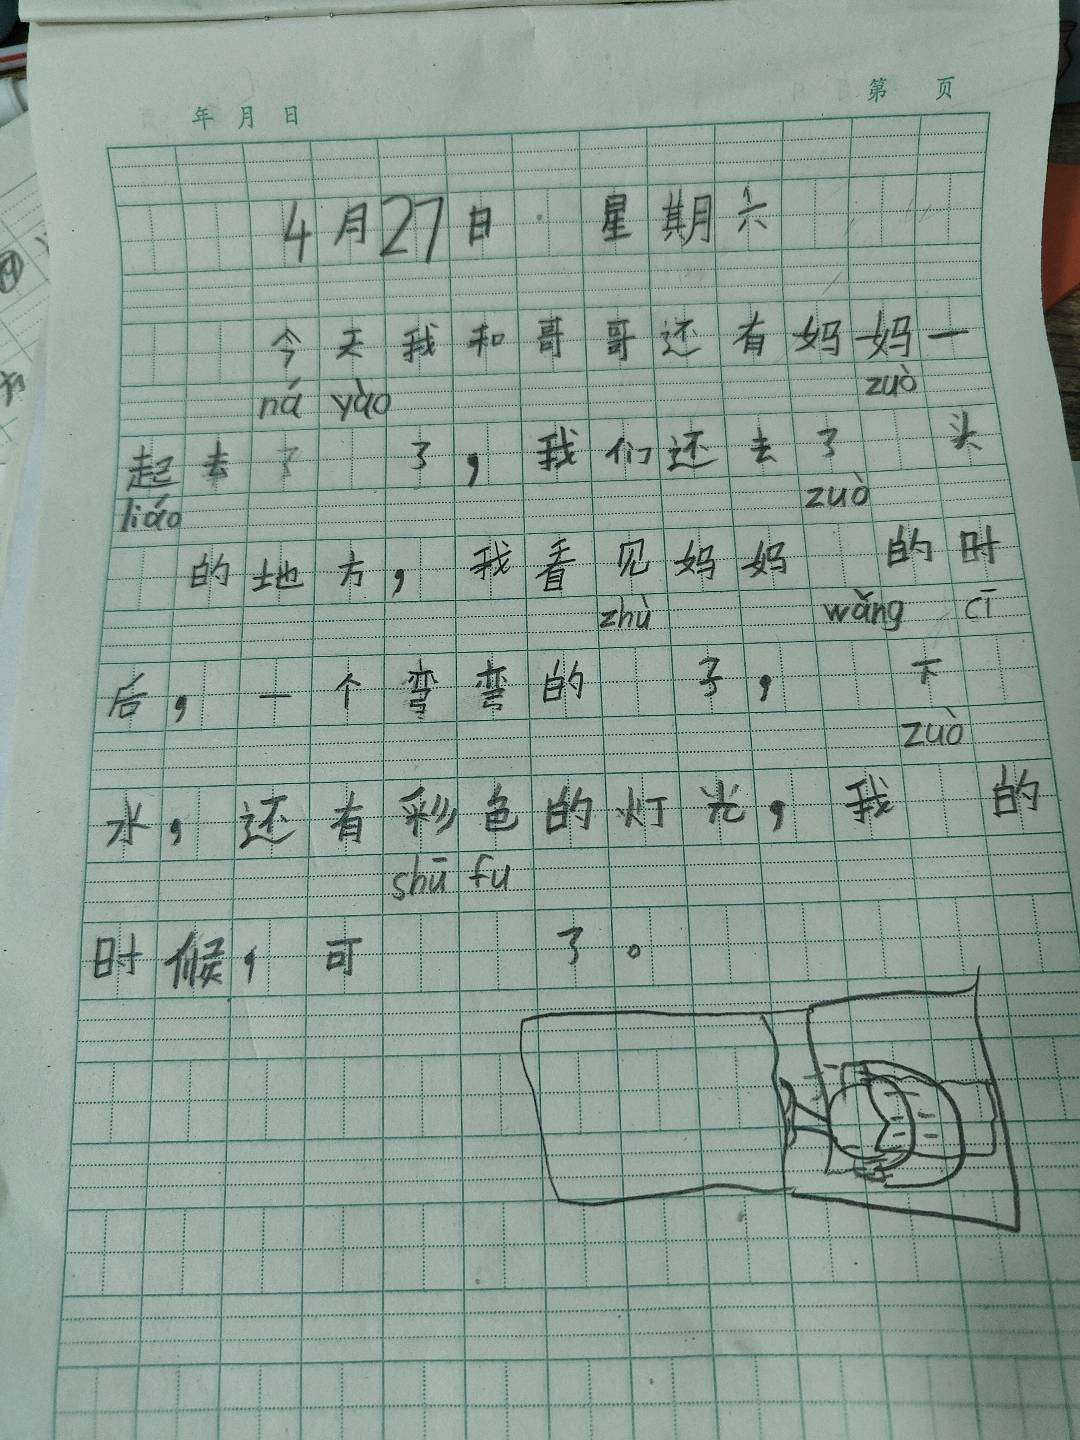 年 月 日 第 页
4月27日 星期六
今天我和哥哥还有妈妈一
ná yào zuò
起去了 了，我们还去了 头
liáo zuò
的地方，我看见妈妈 的时
zhù wǎng cī
后，一个弯弯的 子， 下
zuò
水，还有彩色的灯光，我 的
shū fu
时候，可 了。